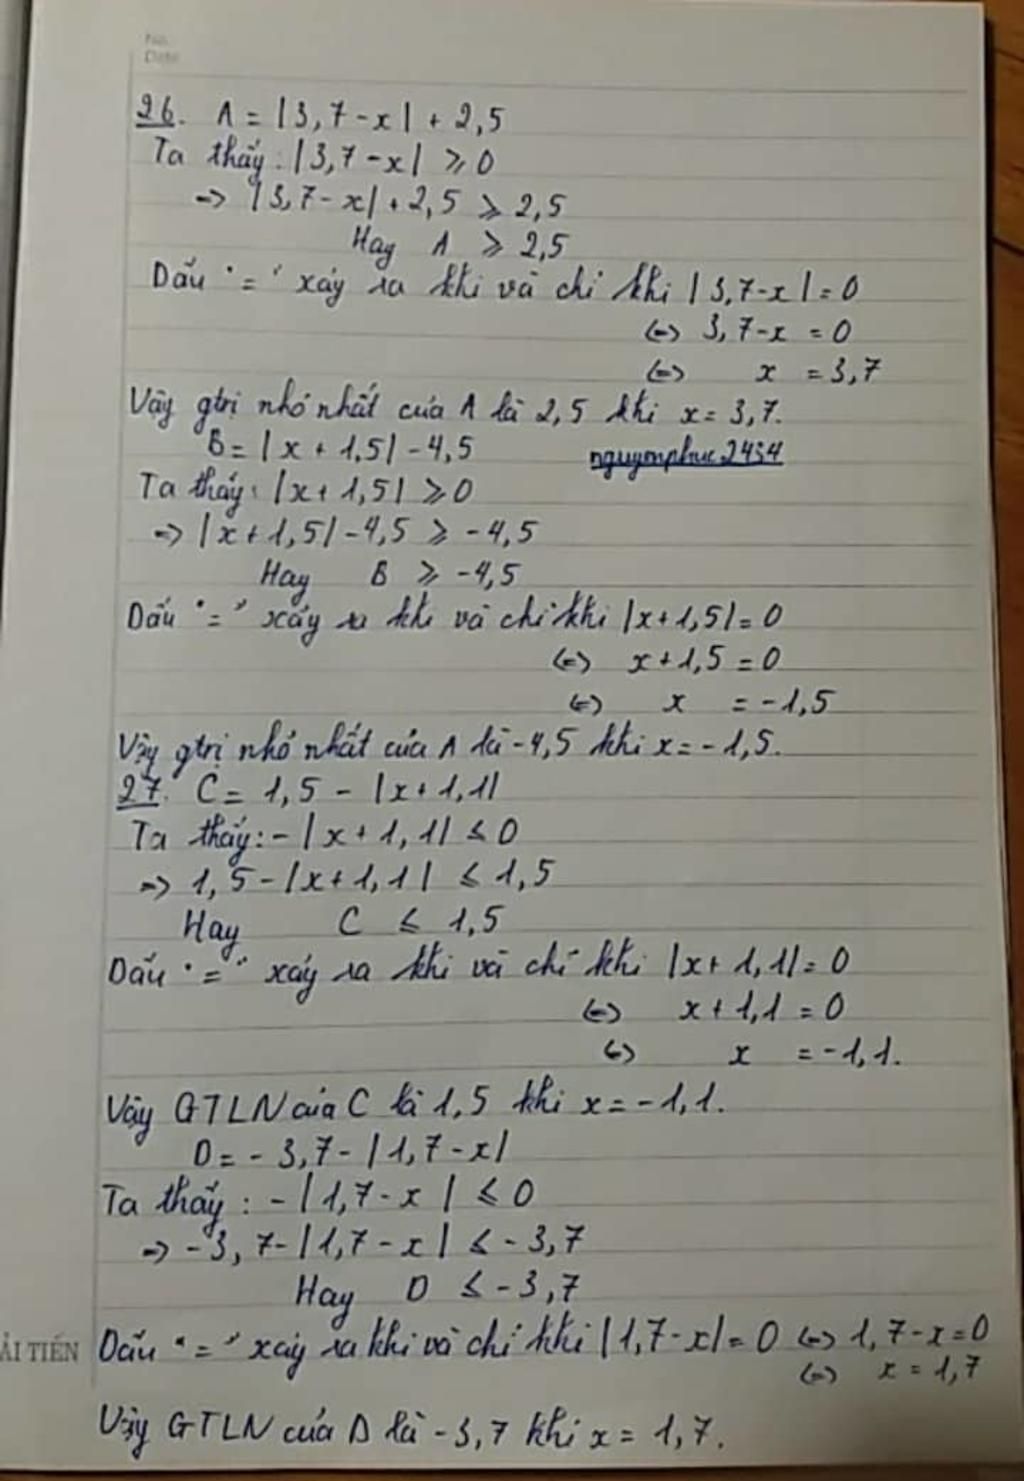 No.
Date
26. A = |3,7 - x| + 2,5
Ta thấy: |3,7 - x| ⩾ 0
=> |3,7 - x| + 2,5 ⩾ 2,5
Hay A ⩾ 2,5
Dấu "=" xảy ra khi và chỉ khi |3,7-x| = 0
<=> 3,7-x = 0
<=> x = 3,7
Vậy gtrị nhỏ nhất của A là 2,5 khi x = 3,7.
B = |x + 1,5| - 4,5
nguymphuc2434
Ta thấy: |x + 1,5| ⩾ 0
=> |x + 1,5| - 4,5 ⩾ -4,5
Hay B ⩾ -4,5
Dấu "=" xảy ra khi và chỉ khi |x+1,5| = 0
<=> x+1,5 = 0
<=> x = -1,5
Vậy gtrị nhỏ nhất của A là -4,5 khi x = -1,5.
27. C = 1,5 - |x + 1,1|
Ta thấy: - |x + 1,1| ⩽ 0
=> 1,5 - |x + 1,1| ⩽ 1,5
Hay C ⩽ 1,5
Dấu "=" xảy ra khi và chỉ khi |x + 1,1| = 0
<=> x + 1,1 = 0
<=> x = -1,1.
Vậy GTLN của C là 1,5 khi x = -1,1.
D = - 3,7 - |1,7 - x|
Ta thấy: - |1,7 - x| ⩽ 0
=> -3,7 - |1,7 - x| ⩽ -3,7
Hay D ⩽ -3,7
ẢI TIẾN
Dấu "=" xảy ra khi và chỉ khi |1,7-x| = 0 <=> 1,7-x = 0
<=> x = 1,7
Vậy GTLN của D là -3,7 khi x = 1,7.